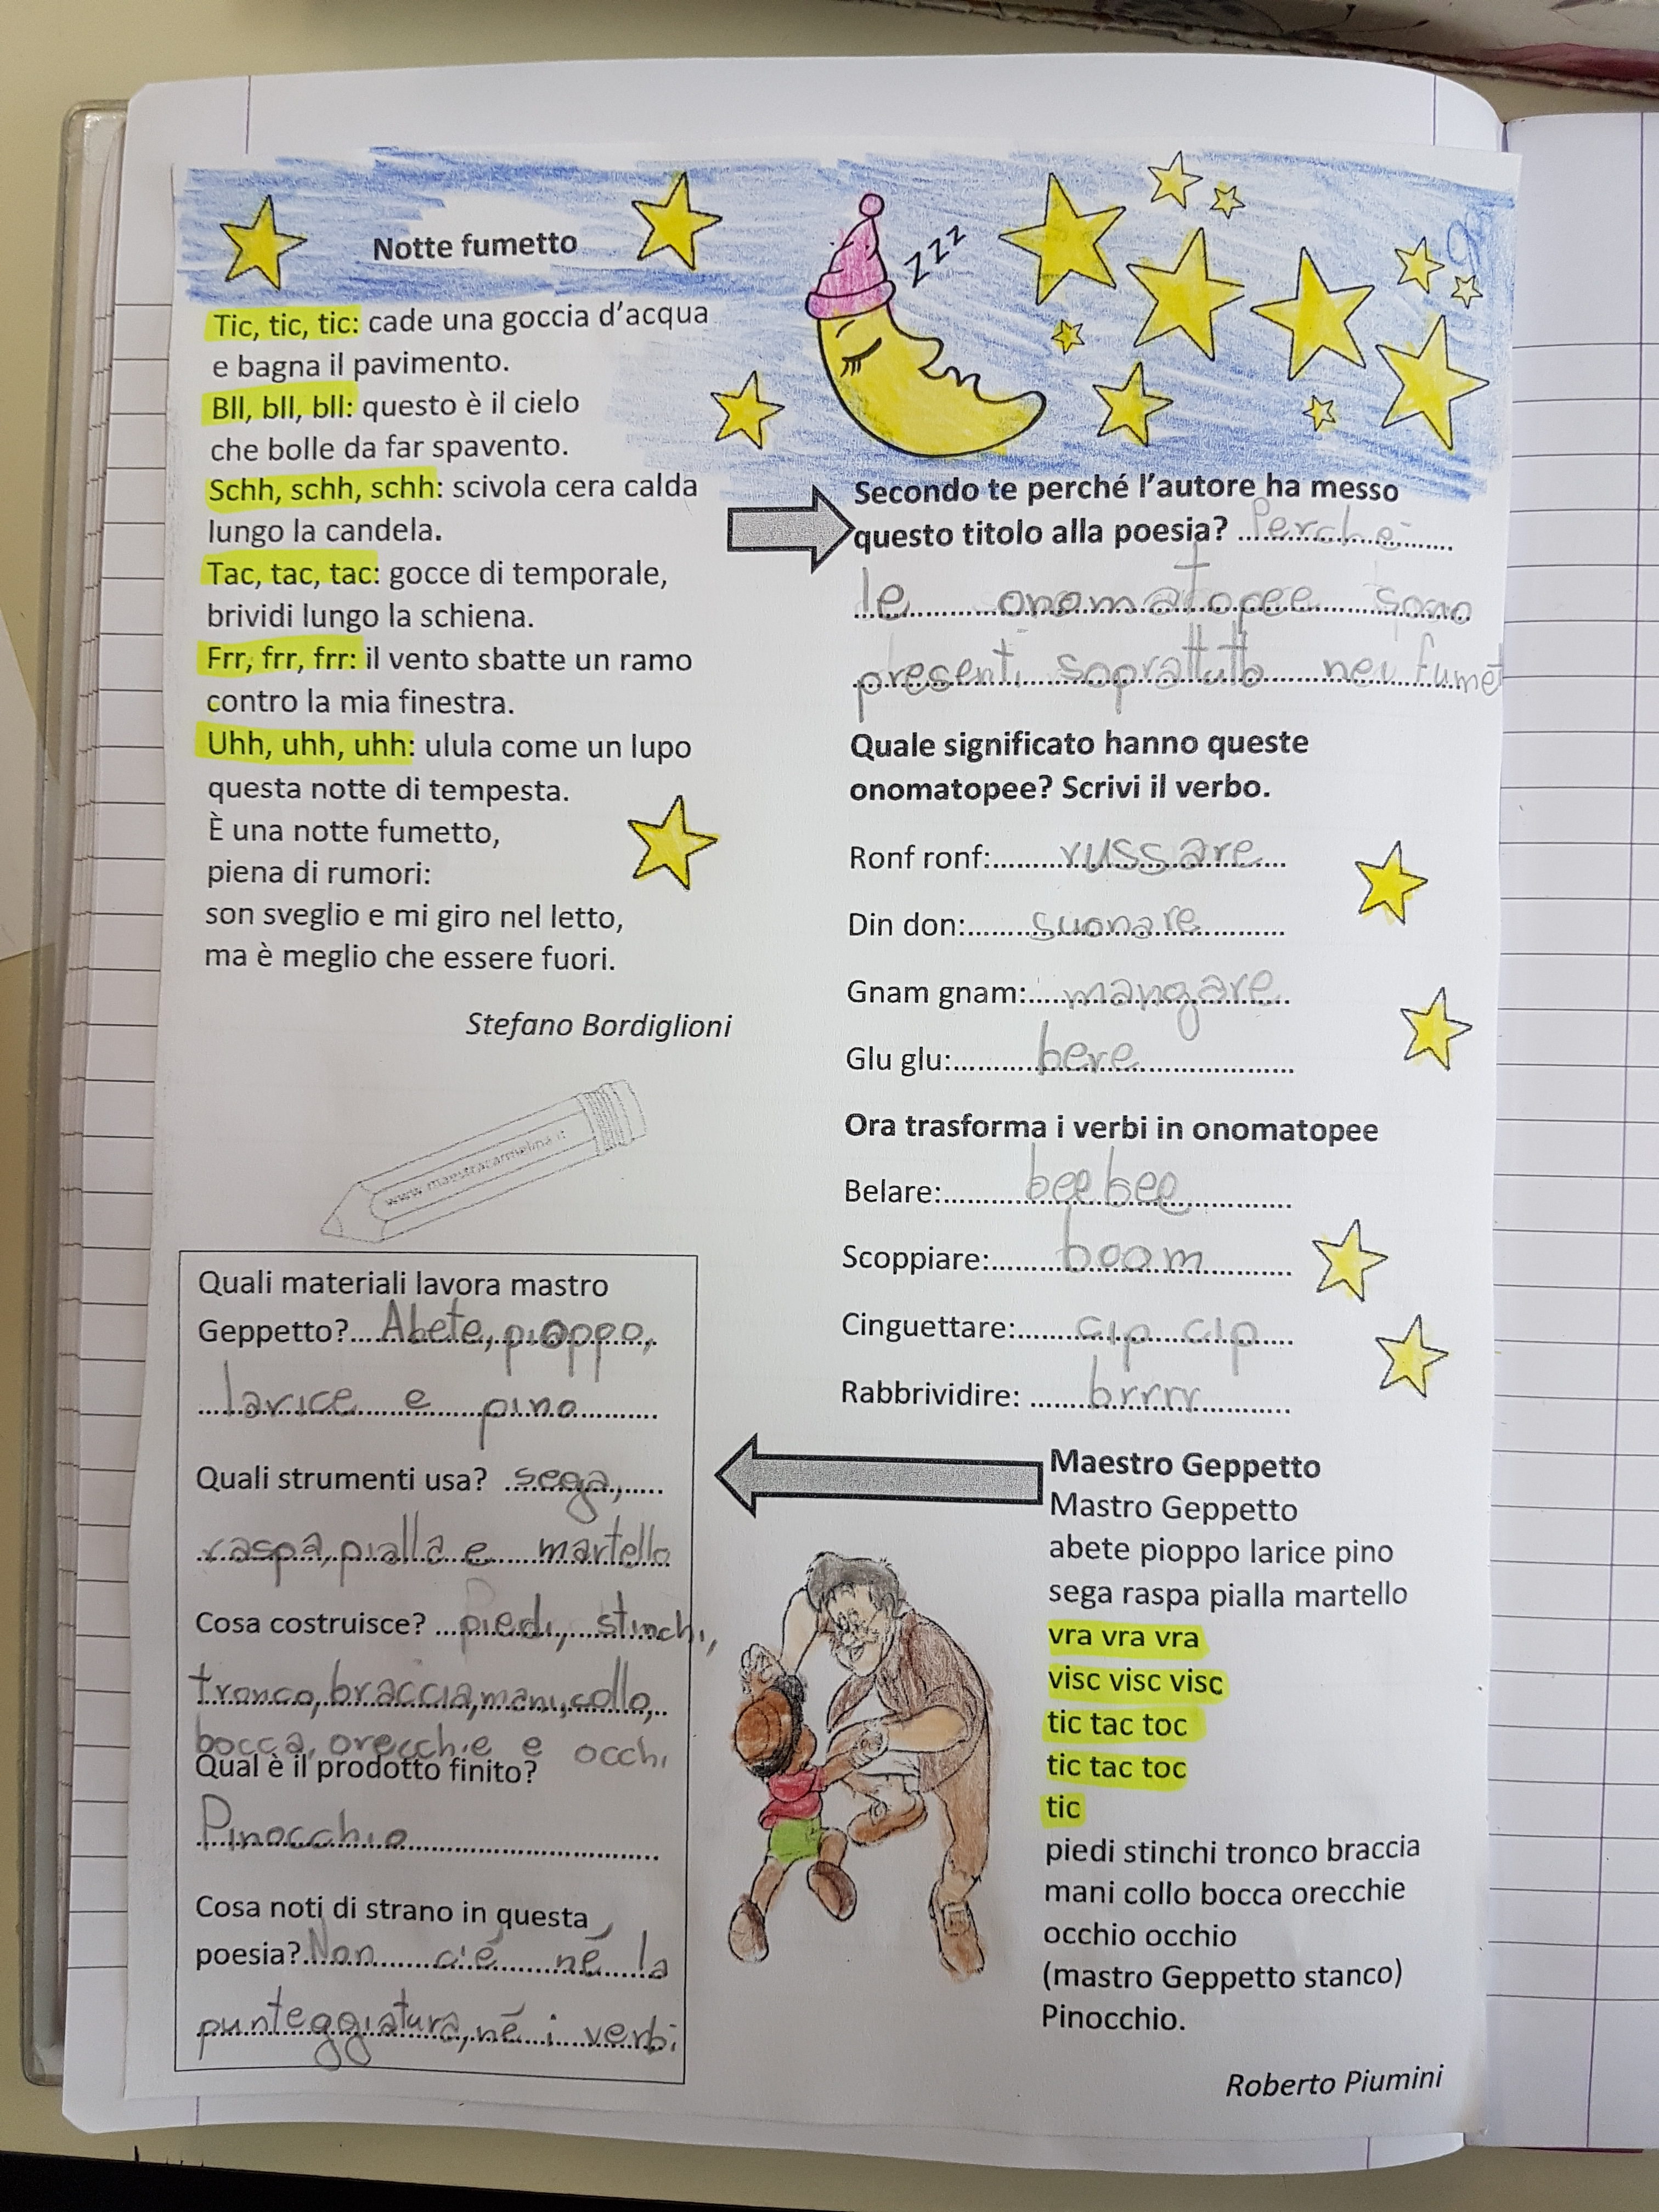 Notte fumetto
Tic, tic, tic: cade una goccia d'acqua
e bagna il pavimento.
Bll, bll, bll: questo è il cielo
che bolle da far spavento.
Schh, schh, schh: scivola cera calda
lungo la candela.
Tac, tac, tac: gocce di temporale,
brividi lungo la schiena.
Frr, frr, frr: il vento sbatte un ramo
contro la mia finestra.
Uhh, uhh, uhh: ulula come un lupo
questa notte di tempesta.
È una notte fumetto,
piena di rumori:
son sveglio e mi giro nel letto,
ma è meglio che essere fuori.
Stefano Bordiglioni
zzz
Secondo te perché l'autore ha messo
questo titolo alla poesia? Perchè
le onomatopee sono
presenti soprattutto nei fumet
Quale significato hanno queste
onomatopee? Scrivi il verbo.
Ronf ronf: russare
Din don: suonare
Gnam gnam: mangare
Glu glu: bere
Ora trasforma i verbi in onomatopee
Belare: bee bee
Scoppiare: boom
Cinguettare: cip cip
Rabbrividire: brrrr
www.maestracarmelina.it
Quali materiali lavora mastro
Geppetto? Abete, pioppo,
larice e pino
Quali strumenti usa? sega,
raspa, pialla e martello
Cosa costruisce? piedi, stinchi,
tronco, braccia, mani, collo,
bocca, orecchie e occhi
Qual è il prodotto finito?
Pinocchio
Cosa noti di strano in questa
poesia? Non c'é né la
punteggiatura, né i verbi
Maestro Geppetto
Mastro Geppetto
abete pioppo larice pino
sega raspa pialla martello
vra vra vra
visc visc visc
tic tac toc
tic tac toc
tic
piedi stinchi tronco braccia
mani collo bocca orecchie
occhio occhio
(mastro Geppetto stanco)
Pinocchio.
Roberto Piumini